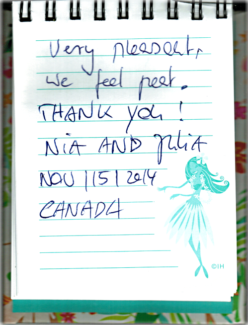 Very pleasent,
we feel great.
THANK you!
NiA AND Julia
NOV | 15 | 2014
CANADA